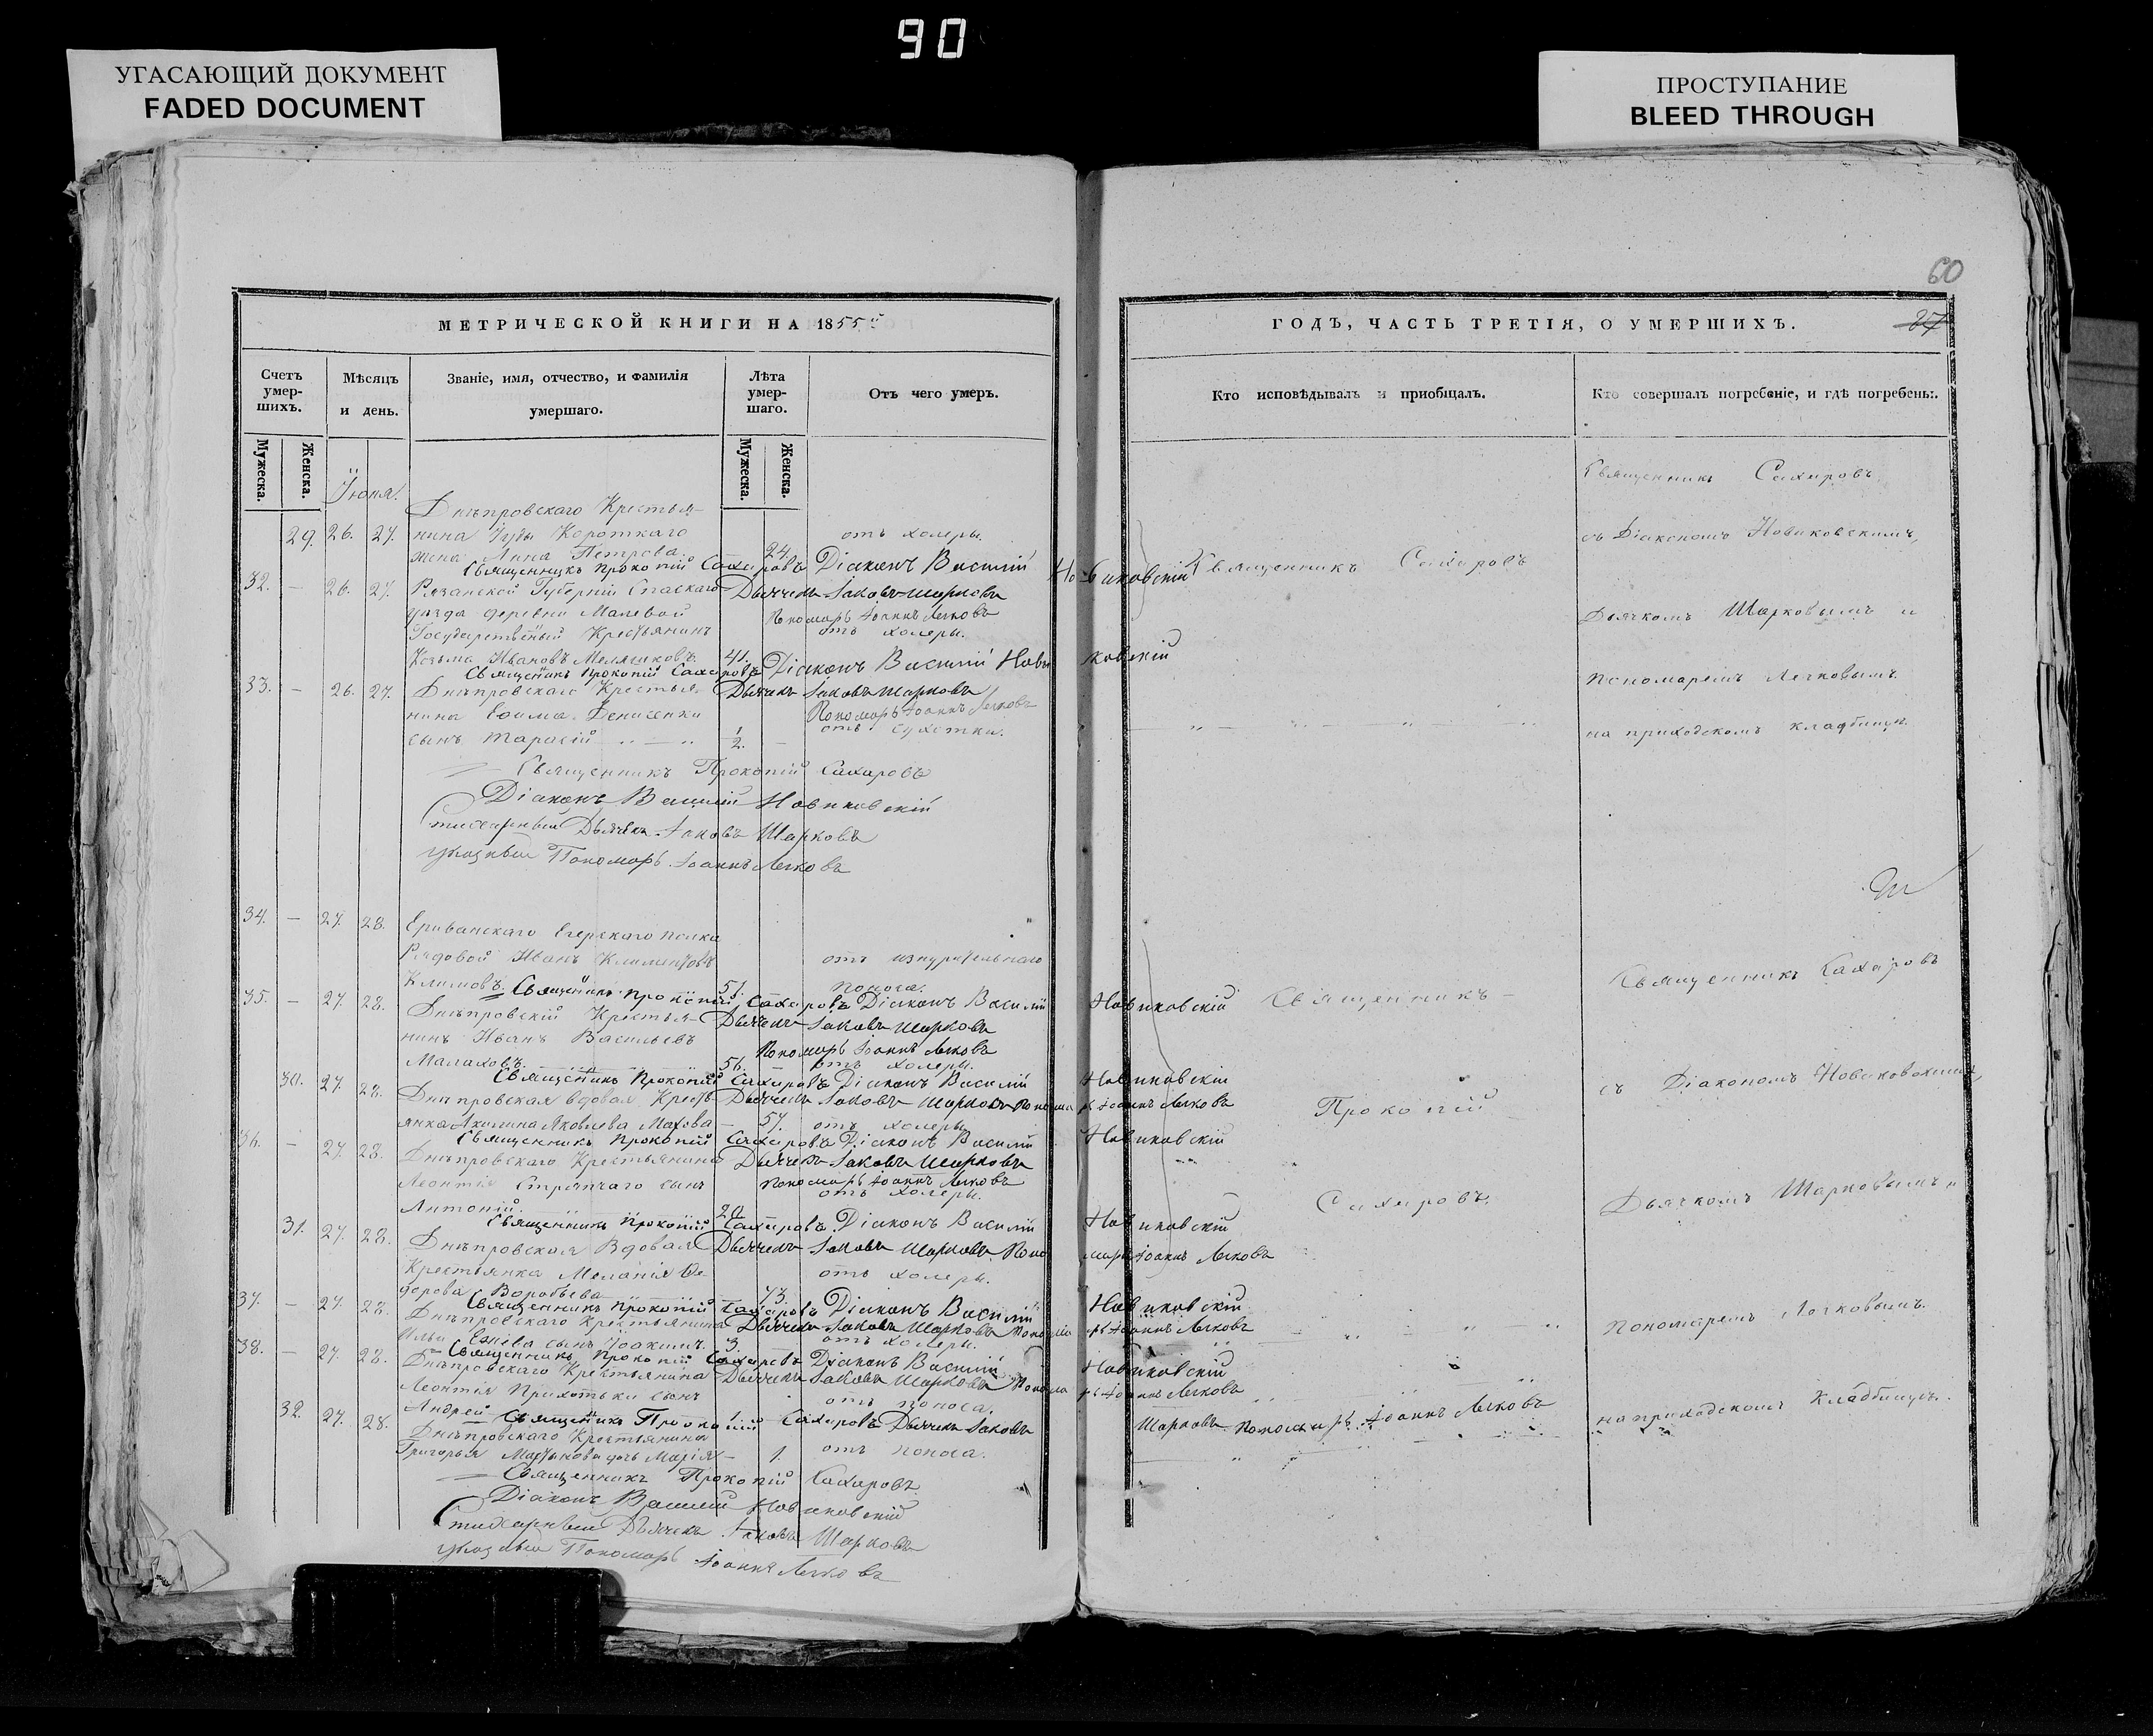 90
УГАСАЮЩИЙ ДОКУМЕНТ
FADED DOCUMENT
ПРОСТУПАНИЕ
BLEED THROUGH
60
МЕТРИЧЕСКОЙ КНИГИ НА 1855й
Счетъ умер-шихъ.
Мѣсяцъ и день.
Званіе, имя, отчество, и фамилія умершаго.
Лѣта умер-шаго.
Отъ чего умеръ.
Мужеска.
Женска.
Мужеска.
Женска.
Іюня.
Днѣпровскаго Крестья-
29. 26. 27. нина Іуды Короткаго отъ холеры.
жена Анна Петрова. 24.
Священникъ Прокопій Сахаровъ Діаконъ Василій Новиковскій
32. — 26. 27. Рязанской Губерніи Спаскаго Дьячекъ Іаковъ Шарковъ
уезда деревни Малевой Пономарь Іоаннъ Легковъ
Государственый Крестьянинъ отъ холеры.
Козьма Ивановъ 41. Діаконъ Василій Новиковскій
Священикъ Прокопій Сахаровъ
33. — 26. 27. Днѣпровскаго Крестья- Дьячекъ Іаковъ Шарковъ
нина Ефима Денисенки Пономарь Іоаннъ Легковъ
сынъ Тарасій 1/2. — отъ сухотки.
Священникъ Прокопій Сахаровъ
Діаконъ Василій Новиковскій
Стихарный Дьячекъ Іаковъ Шарковъ
Указный Пономарь Іоаннъ Легковъ
34. — 27. 28. Ериванскаго Егерскаго полка
Рядовой Иванъ Климентовъ отъ изнурительнаго
Климовъ. 51. поноса.
Священикъ Прокопій Сахаровъ Діаконъ Василій Новиковскій
35. — 27. 28. Днѣпровскій Крестья- Дьячекъ Іаковъ Шарковъ
нинъ Иванъ Васильевъ Пономарь Іоаннъ Легковъ
Малаховъ. 56. отъ холеры.
Священикъ Прокопій Сахаровъ Діаконъ Василій Новиковскій
30. 27. 28. Днѣпровская вдовая Кресть- Дьячекъ Іаковъ Шарковъ Пономарь Іоаннъ Легковъ
янка Акилина Яковлева Махова — 57. отъ холеры
Священникъ Прокопій Сахаровъ Діаконъ Василій Новиковскій
36. — 27. 28. Днѣпровскаго Крестьянина Дьячекъ Іаковъ Шарковъ
Леонтія Стряпчаго сынъ Пономарь Іоаннъ Легковъ
Антоній. 20. отъ холеры.
Священникъ Прокопій Сахаровъ Діаконъ Василій Новиковскій
31. 27. 28. Днѣпровская Вдовая Дьячекъ Іаковъ Шарковъ Пономарь Іоаннъ Легковъ
Крестьянка Меланія Ѳе- отъ холеры.
дорова Воробьева 73.
Священникъ Прокопій Сахаровъ Діаконъ Василій Новиковскій
37. — 27. 28. Днѣпровскаго Крестьянина Дьячекъ Іаковъ Шарковъ Пономарь Іоаннъ Легковъ
Ильи сынъ Іоакимъ. 3. отъ холеры.
Священникъ Прокопій Сахаровъ Діаконъ Василій Новиковскій
38. — 27. 28. Днѣпровскаго Крестьянина Дьячекъ Іаковъ Шарковъ Пономарь Іоаннъ Легковъ
Леонтія Прихотьки сынъ отъ поноса.
Андрей 1.
Священикъ Прокопій Сахаровъ Дьячекъ Іаковъ Шарковъ Пономарь Іоаннъ Легковъ
32. 27. 28. Днѣпровскаго Крестьянина
Григорья Мартынова дочь Марія — 1. отъ поноса.
Священникъ Прокопій Сахаровъ
Діаконъ Василій Новиковскій
Стихарный Дьячекъ Іаковъ Шарковъ
Указный Пономарь Іоаннъ Легковъ
ГОДЪ, ЧАСТЬ ТРЕТІЯ, О УМЕРШИХЪ.
27
Кто исповѣдывалъ и пріобщалъ.
Кто совершалъ погребеніе, и гдѣ погребены.
Священникъ Сахаровъ
Священникъ Сахаровъ
съ Діакономъ Новиковскимъ,
Дьячкомъ Шарковымъ и
Пономаремъ Легковымъ
на приходскомъ кладбищѣ
Священникъ
Прокопій
Сахаровъ.
Священникъ Сахаровъ
съ Діакономъ Новиковскимъ,
Дьячкомъ Шарковымъ и
Пономаремъ Легковымъ.
на приходскомъ кладбищѣ.